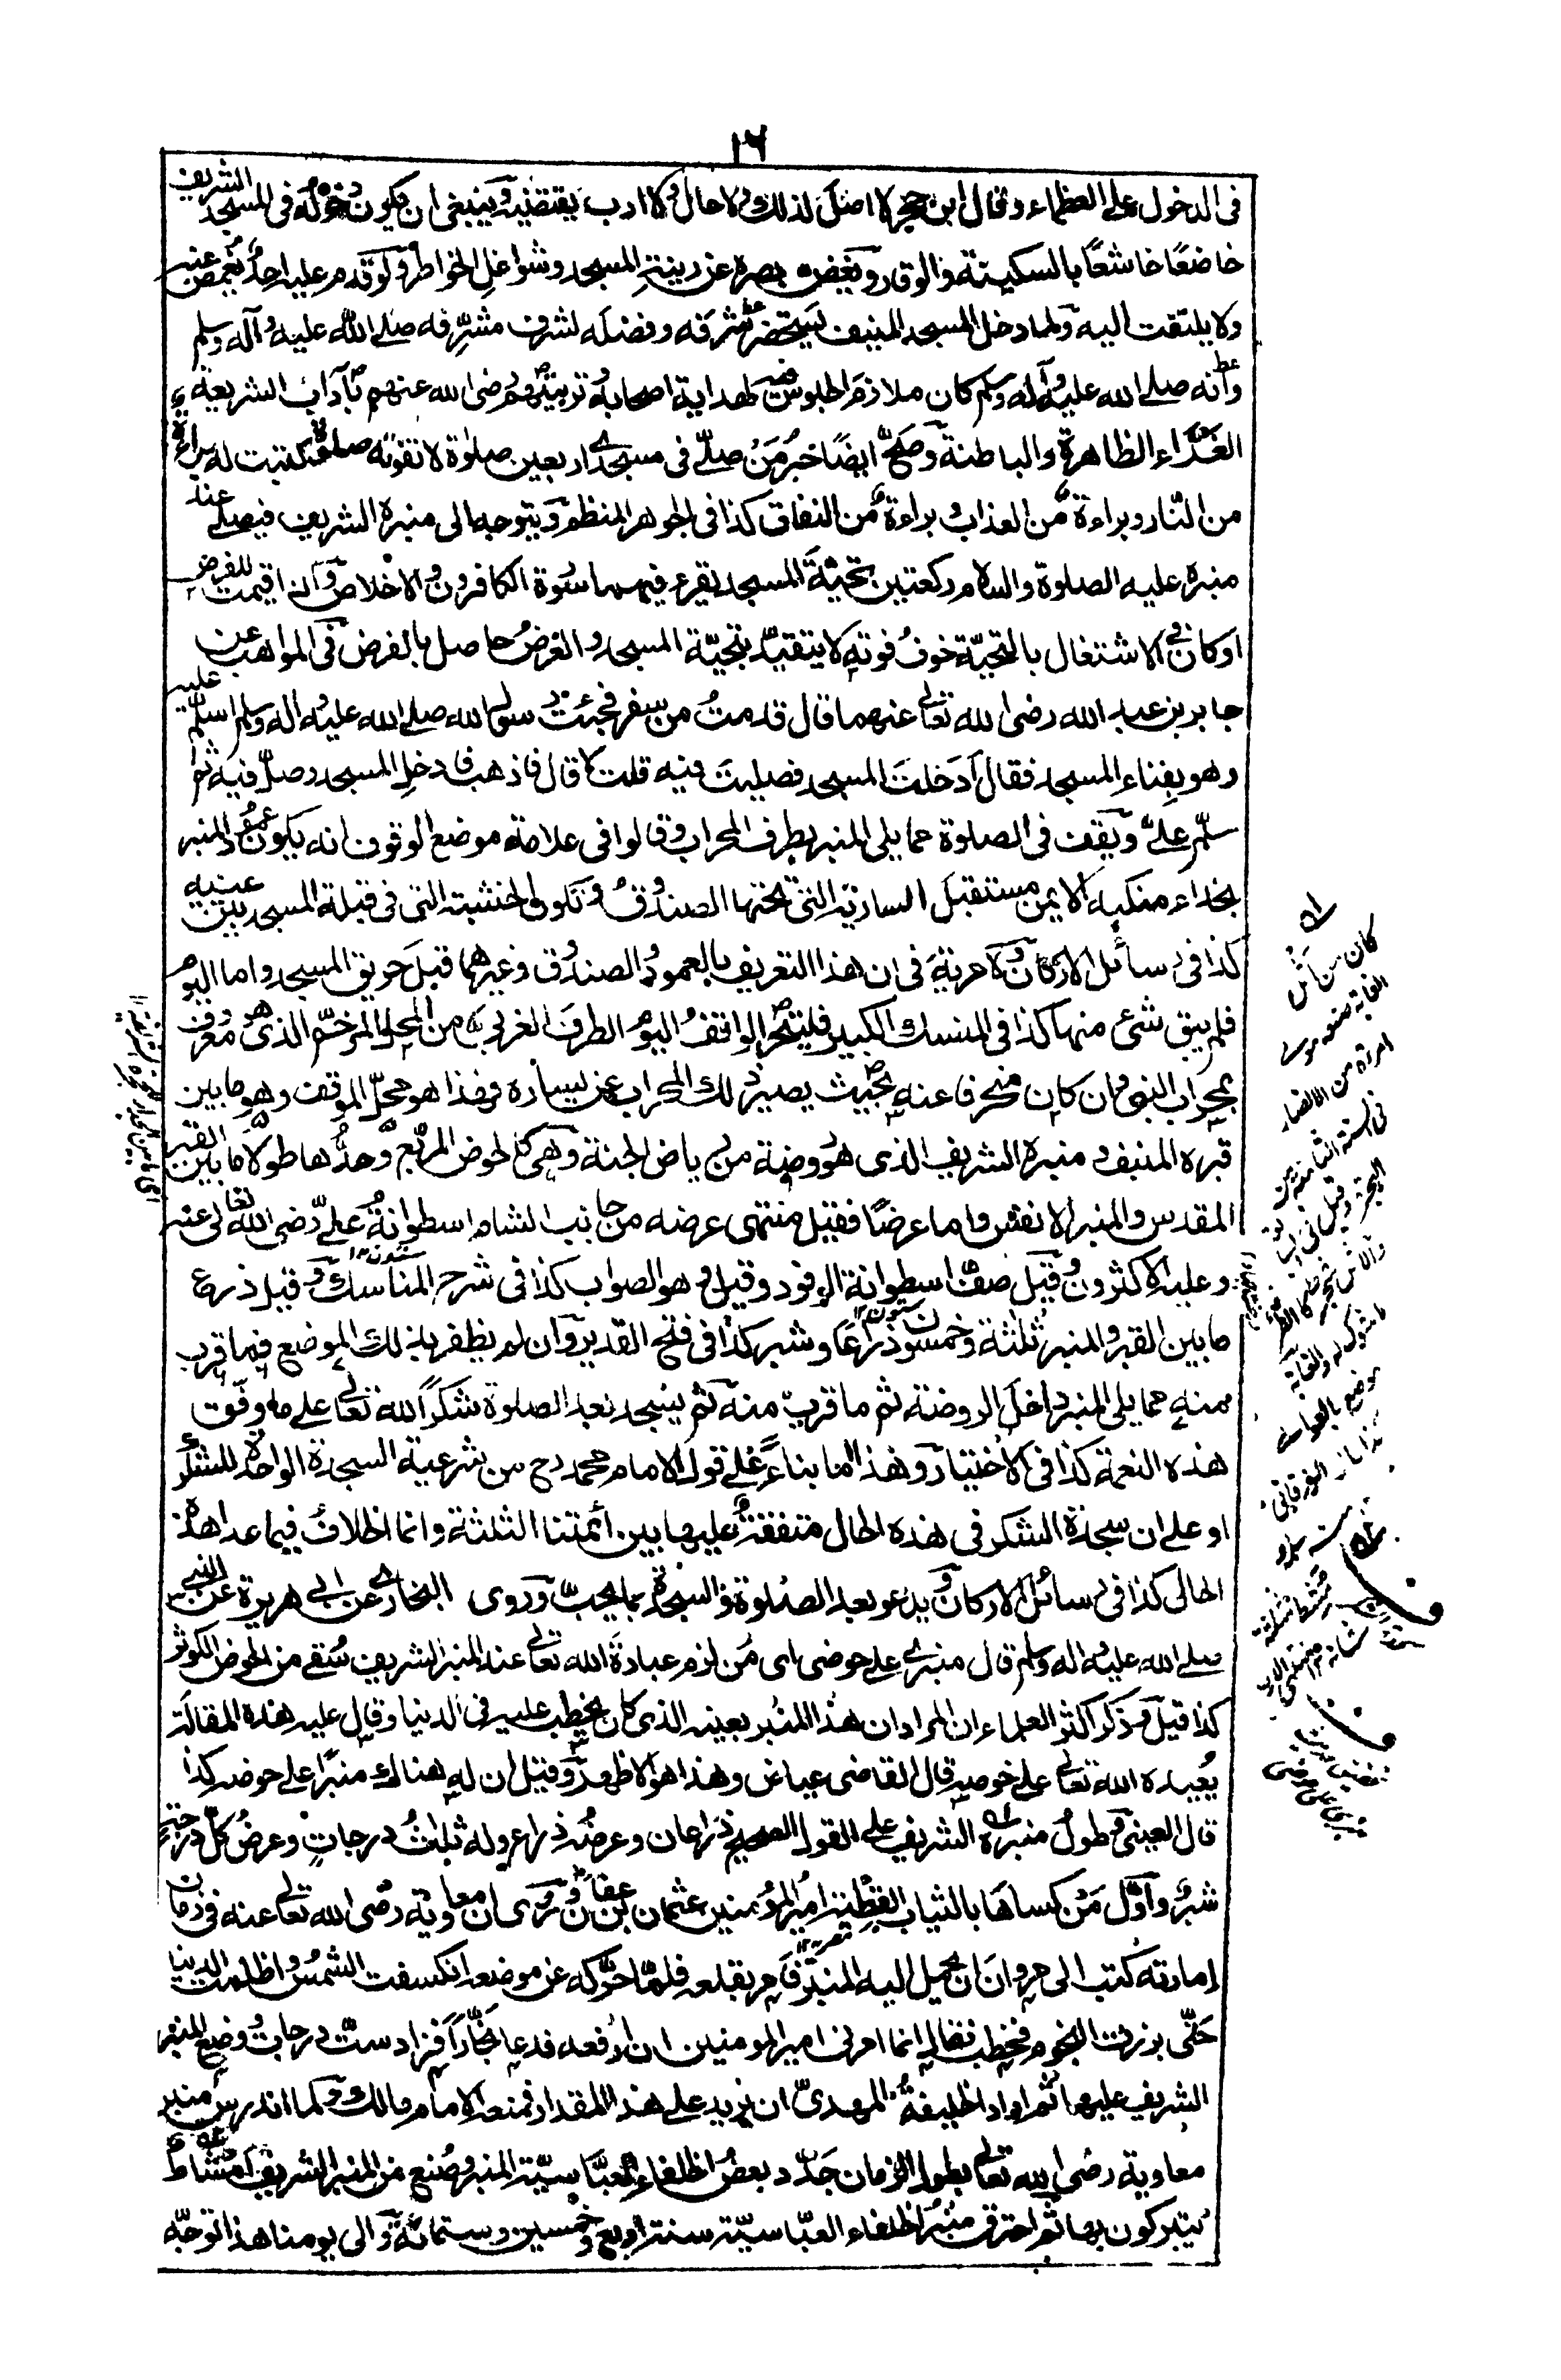 ١٦
فى الدخول على العظماء وقال ابن حجر لا اصل لذلك ولا حال ولا ادب يقتضيه وينبغى ان يكون دخوله فى المسجد الشريف
خاضعًا خاشعًا بالسكينة والوقار وبغض بصره عن زينة المسجد وشواغل الخواطر ولو قدم عليه احدٌ يغمض عنه
ولا يلتفت اليه ولما دخل المسجد المنيف يستحضر شرفه وفضله لشرف مشرّفه صلى الله عليه وآله وسلم
وانه صلى الله عليه وآله وسلم كان ملازم الجلوس لهداية اصحابه وتربيتهم رضى الله عنهم بآداب الشريعة
الغرّاء الظاهرة والباطنة وصحّ ايضًا خبرُ مَنْ صلّى فى مسجدى اربعين صلوٰة لا تفوته صلوة كتبت له براءة
من النّار وبراءة من العذاب وبراءة من النفاق كذا فى الجوهر المنظم ويتوجه الى منبره الشريف فيصلى عند
منبره عليه الصلوة والسلام ركعتين تحيّة المسجد يقرء فيهما سورة الكافرون والاخلاص وان اقيمت للفرض
او كان فى الاشتغال بالتحيّة خوفُ فوته لا يتقيّد بتحيّة المسجد والغرضُ حاصل بالفرض فى المواهب عن
جابر بن عبد الله رضى الله تعالى عنهما قال قدمتُ من سفر فجئت رسول الله صلى الله عليه واله وسلم اسلّم عليه
وهو بفناء المسجد فقال أدَخلتَ المسجد فصليتَ فيه قلت لا قال فاذهب فادخلِ المسجد وصلّ فيه ثم
سلّم علىّ ويقف فى الصلوة مما يلى المنبر بطرف المحراب وقالوا فى علامة موضع الوقوف انه يكون عمودُ المنبر
بحذاء منكبه الايمن مستقبل السارية التى تحتها الصندوقُ وتكون الخشبة التى فى قبلة المسجد بين عينيه
كذا فى رسائل الاركان ولا مرية فى ان هذا التعريف بالعمود والصندوق وغيرهما قبل حريق المسجد واما اليوم
فلم يبق شئ منها كذا فى المنسك الكبير فليتحرّ الواقفُ اليوم الطرفَ الغربى من المحل المرخّم الذى هو معروف
بمحراب النبى وان كان منحرفا عنه بحيث يصير ذلك المحراب عن يساره فهذا هو محلّ الموقف وهو ما بين
قبره المنيف ومنبره الشريف الذى هو روضة من رياض الجنة وهى كالحوض المربّع وحدُّها طولًا ما بين القبر
المقدس والمنبر الانفس واما عرضًا فقيل منتهى عرضه من جانب الشام اسطوانةُ علىّ رضى الله تعالى عنه
وعليه الاكثرون وقيل صفّ اسطوانة الوفود وقيل وهو الصواب كذا فى شرح المناسك وقيل ذرع
ما بين القبر والمنبر ثلثة وخمسون ذراعًا وشبر كذا فى فتح القدير وان لم يظفر بذلك الموضع فما قرب
منه مما يلى المنبر داخل الروضة ثم ما قرب منه ثم يسجد بعد الصلوة شكرًا لله تعالى على ما وفّق
هذه النعمة كذا فى الاختيار وهذا اما بناءً على قول الامام محمد رح من شرعية السجدة الواحدة للشكر
او على ان سجدة الشكر فى هذه الحال متفقةٌ عليها بين أئمتنا الثلثة وانما الخلافُ فيما عدا هذه
الحال كذا فى رسائل الاركان ويدعو بعد الصلوة والسجدة بما يحبّ وروى البخارى عن ابى هريرة عن النبى
صلى الله عليه واله وسلم قال منبرى على حوضى اى مَن لزم عبادةَ الله تعالى عند المنبر الشريف سُقى من الحوض الكوثر
كذا قيل وذكر اكثر العلماء ان المراد ان هذا المنبر بعينه الذى كان يخطب عليه فى الدنيا وقال عليه هذه المقالة
يُعِيده الله تعالى على حوضه قال القاضى عياض وهذا هو الاظهر وقيل ان له هنالك منبرًا على حوضه كذا
قال العينى طولُ منبره الشريف على القول الصحيح ذراعان وعرضُه ذراع وله ثلاثُ درجاتٍ وعرضُ كلّ درجةٍ
شبرٌ واوّل مَن كساها بالثياب القبطية امير المؤمنين عثمان بن عفان وروى ان معاوية رضى الله تعالى عنه فى زمان
امارته كتب الى مروان ان يحمل اليه المنبر فأمر بقلعه فلمّا حرّكه عن موضعه انكسفت الشمسُ واظلمت الدنيا
حتّى برزت النجوم فخطب فقال انما امرنى امير المومنين ان ارفعه فدعا نجّارًا فزاد ستّ درجات ووضع المنبر
الشريف عليها ثم اراد الخليفةُ المهدىّ ان يزيد على هذا المقدار فمنعه الامام مالك ولما اندرس منبر
معاوية رضى الله تعالى بطول الزمان جدّد بعضُ الخلفاء العبّاسيّة المنبر وصُنع من المنبر الشريف امشاط
يتبركون بها ثم احترق منبر الخلفاء العبّاسيّة سنة اربع وخمسين وستمائة والى يومنا هذا توجّه
ستون ١٢
مصر ١٢
كان من اثل
الغابة صنعه مولى
امراة من الانصار
فى السنة الثامنة من
الهجرة وقيل فى
موضع بالعوالى